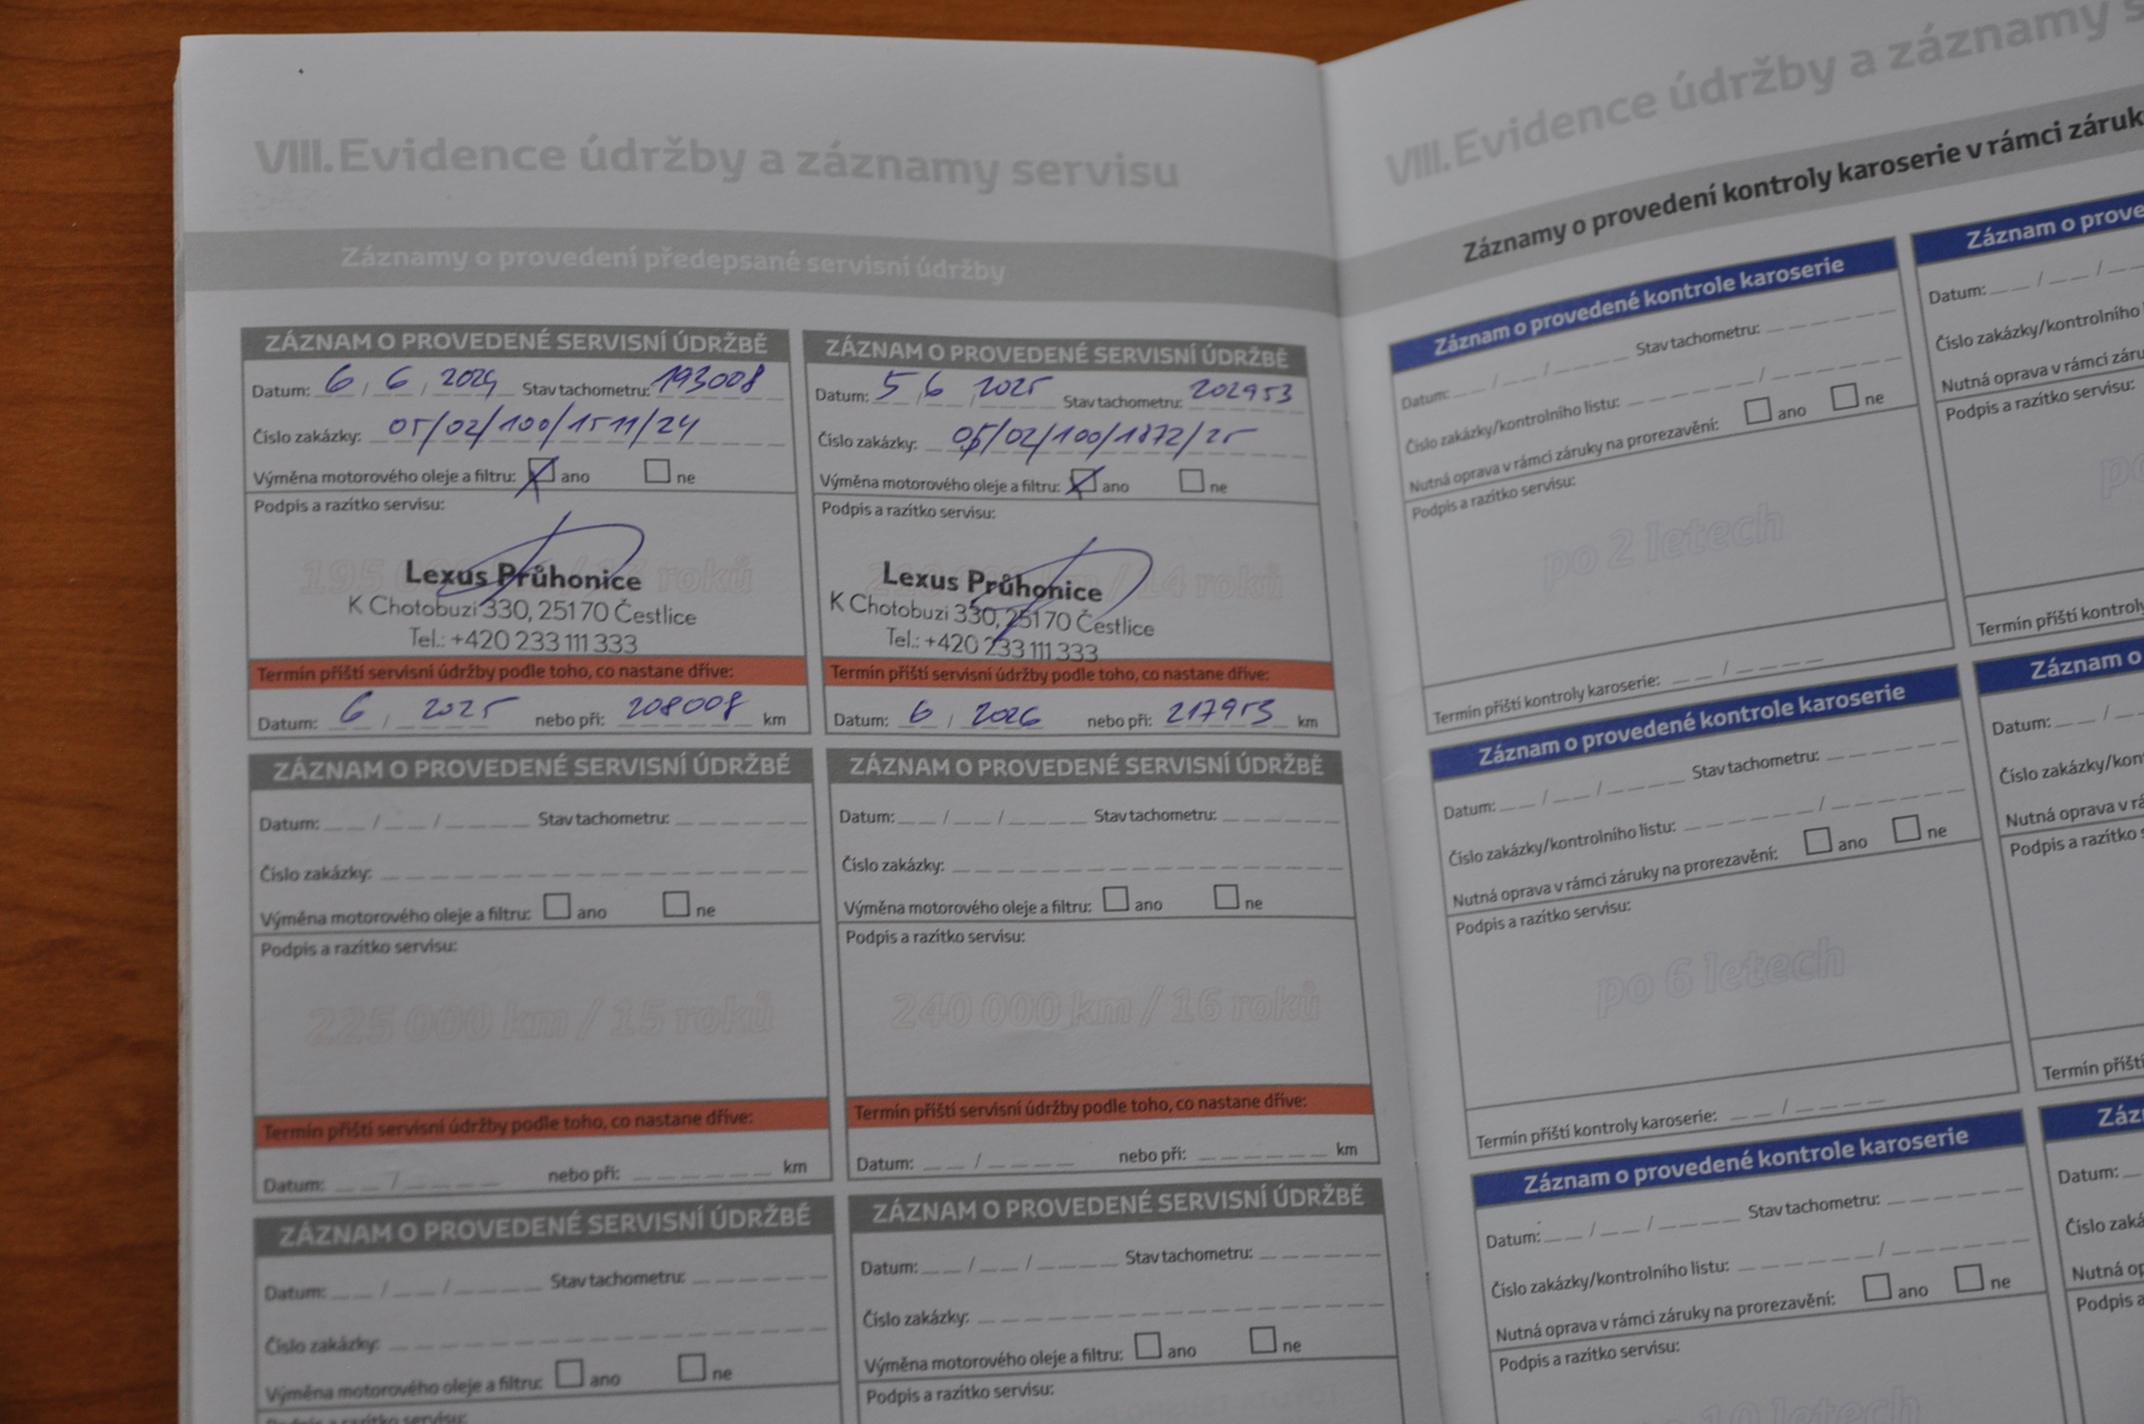 VIII. Evidence údržby a záznamy servisu
Záznamy o provedení předepsané servisní údržby
ZÁZNAM O PROVEDENÉ SERVISNÍ ÚDRŽBĚ
Datum: 6 / 6 / 2024 Stav tachometru: 193008
Číslo zakázky: 05/02/100/1511/24
Výměna motorového oleje a filtru: ano ne
Podpis a razítko servisu:
195 roků
Lexus Průhonice
K Chotobuzi 330, 251 70 Čestlice
Tel.: +420 233 111 333
Termín příští servisní údržby podle toho, co nastane dříve:
Datum: 6 / 2025 nebo při: 208008 km
ZÁZNAM O PROVEDENÉ SERVISNÍ ÚDRŽBĚ
Datum: 5 / 6 / 2025 Stav tachometru: 202953
Číslo zakázky: 05/02/100/1872/25
Výměna motorového oleje a filtru: ano ne
Podpis a razítko servisu:
/ 14 roků
Lexus Průhonice
K Chotobuzi 330, 251 70 Čestlice
Tel.: +420 233 111 333
Termín příští servisní údržby podle toho, co nastane dříve:
Datum: 6 / 2026 nebo při: 217953 km
ZÁZNAM O PROVEDENÉ SERVISNÍ ÚDRŽBĚ
Datum: __/__/____ Stav tachometru: ______
Číslo zakázky:
Výměna motorového oleje a filtru: ano ne
Podpis a razítko servisu:
225 000 km / 15 roků
Termín příští servisní údržby podle toho, co nastane dříve:
Datum: __/____ nebo při: ______ km
ZÁZNAM O PROVEDENÉ SERVISNÍ ÚDRŽBĚ
Datum: __/__/____ Stav tachometru: ______
Číslo zakázky:
Výměna motorového oleje a filtru: ano ne
Podpis a razítko servisu:
240 000 km / 16 roků
Termín příští servisní údržby podle toho, co nastane dříve:
Datum: __/____ nebo při: ______ km
ZÁZNAM O PROVEDENÉ SERVISNÍ ÚDRŽBĚ
Datum: __/__/____ Stav tachometru: ______
Číslo zakázky:
Výměna motorového oleje a filtru: ano ne
Podpis a razítko servisu:
ZÁZNAM O PROVEDENÉ SERVISNÍ ÚDRŽBĚ
Datum: __/__/____ Stav tachometru: ______
Číslo zakázky:
Výměna motorového oleje a filtru: ano ne
Podpis a razítko servisu:
VIII. Evidence údržby a záznamy s
Záznamy o provedení kontroly karoserie v rámci záruk
Záznam o provedené kontrole karoserie
Datum: __/__/____ Stav tachometru: ______
Číslo zakázky/kontrolního listu:
Nutná oprava v rámci záruky na prorezavění: ano ne
Podpis a razítko servisu:
po 2 letech
Termín příští kontroly karoserie: __/____
Záznam o provedené kontrole karoserie
Datum: __/__/____ Stav tachometru: ______
Číslo zakázky/kontrolního listu:
Nutná oprava v rámci záruky na prorezavění: ano ne
Podpis a razítko servisu:
po 6 letech
Termín příští kontroly karoserie: __/____
Záznam o provedené kontrole karoserie
Datum: __/__/____ Stav tachometru: ______
Číslo zakázky/kontrolního listu:
Nutná oprava v rámci záruky na prorezavění: ano ne
Podpis a razítko servisu:
10 letech
Záznam o prove
Datum: __/__/
Číslo zakázky/kontrolního
Nutná oprava v rámci záru
Podpis a razítko servisu:
po
Termín příští kontroly
Záznam o
Datum: __/__
Číslo zakázky/kon
Nutná oprava v rá
Podpis a razítko s
Termín příští
Zázn
Datum:
Číslo zaká
Nutná op
Podpis a